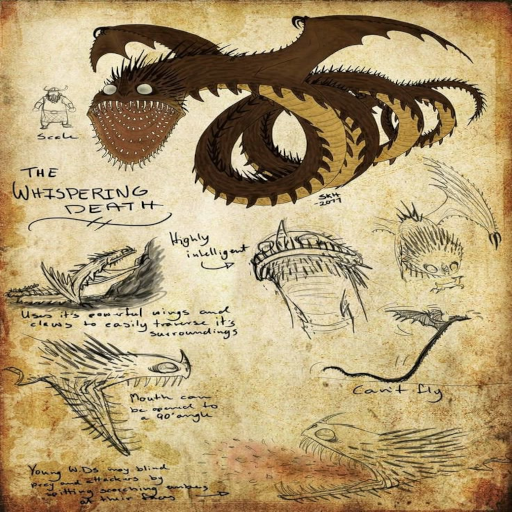 Scale
THE
WHISPERING
DEATH
SKH
-2017
Highly
intelligent
Uses it's powerful wings and
claws to easily traverse it's
surroundings
Mouth can
be opened to
a 90° angle
Can't fly
Young W.Ds may blind
prey and attackers by
spitting scorching embers
at their faces